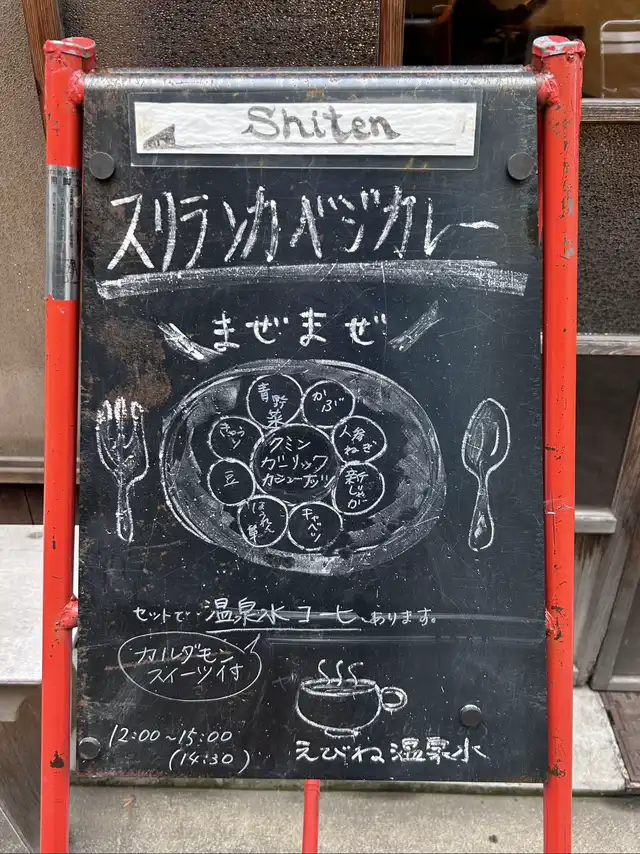 Shiten
スリランカベジカレー
まぜまぜ
青野菜
かぶ
きゅうり
人参
ねぎ
クミン
ガーリック
カシューナッツ
豆
新じゃが
ほうれん草
キャベツ
セットで温泉水コーヒーあります。
カルダモン
スイーツ付
12:00~15:00
(14:30)
えびね温泉水